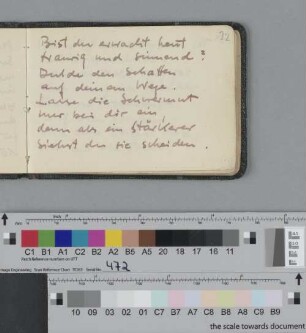 32
Bist du erwacht heut
traurig und sinnend:
Dulde den Schatten
auf deinem Wege.
Lasse die Schwermut
nur bei dir ein,
denn als ein Stärkerer
siehst du sie scheiden.
C1 B1 A1 C2 B2 A2 B5 A5 20 18 17 16 11
472
10 09 03 02 01 C7 B7 A7 C8 B8 A8 C9 B9
the scale towards document